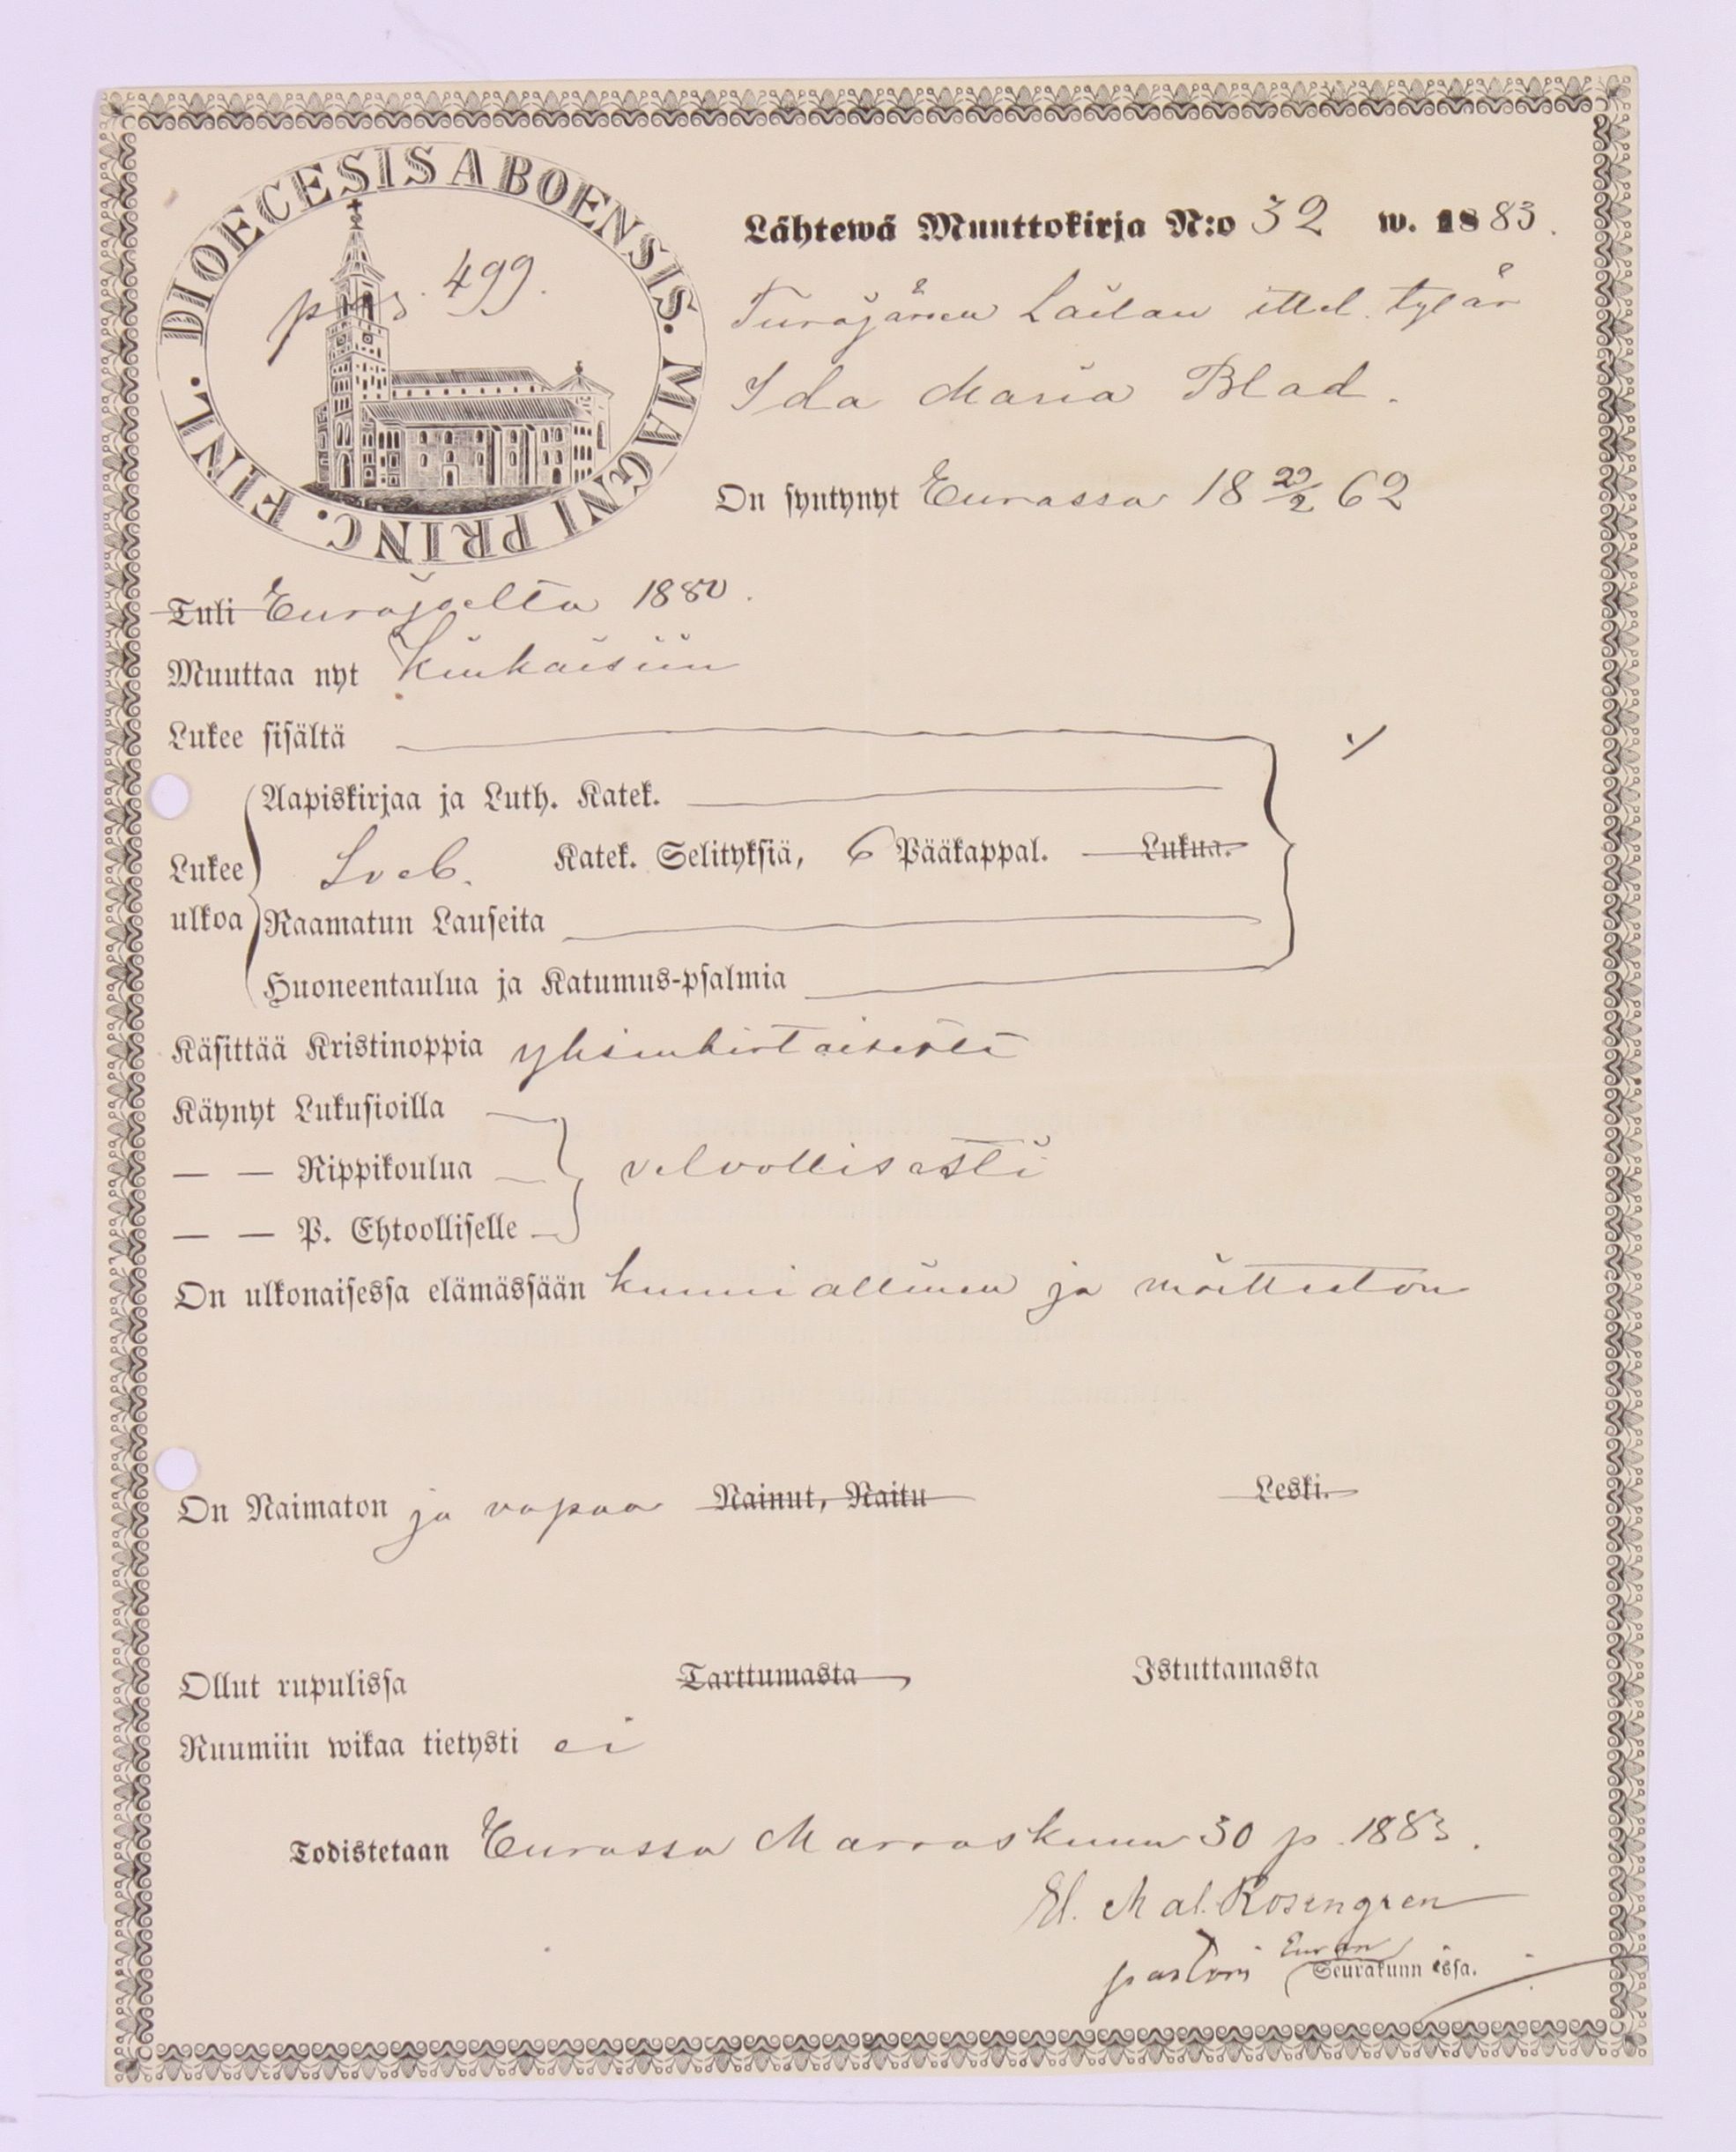 DIOECESIS ABOENSIS. MAGNI PRINC. FINL.
pag. 499.
Lähtewä Muuttokirja N:o 32 w. 1883.
Turajärven Lailan ittel. tytär
Ida Maria Blad.
On syntynyt Eurassa 18 22/2 62
Tuli Eurajoelta 1880.
Muuttaa nyt Kiukaisiin
Lukee sisältä
Aapiskirjaa ja Luth. Katek.
Lukee ulkoa Sveb. Katek. Selityksiä, 6 Pääkappal. Lukua.
Raamatun Lauseita
Huoneentaulua ja Katumus-psalmia
Käsittää Kristinoppia yksinkertaisesti
Käynyt Lukusioilla
— — Rippikoulua velvollisesti
— — P. Ehtoolliselle
On ulkonaisessa elämässään kunniallinen ja moitteeton
On Naimaton ja vapaa Nainut, Naitu Leski.
Ollut rupulissa Tarttumasta Istuttamasta
Ruumiin wikaa tietysti ei
Todistetaan Eurassa Marraskuun 30 p. 1883.
El. Mal. Rosengren
pastori Euran Seurakunnissa.